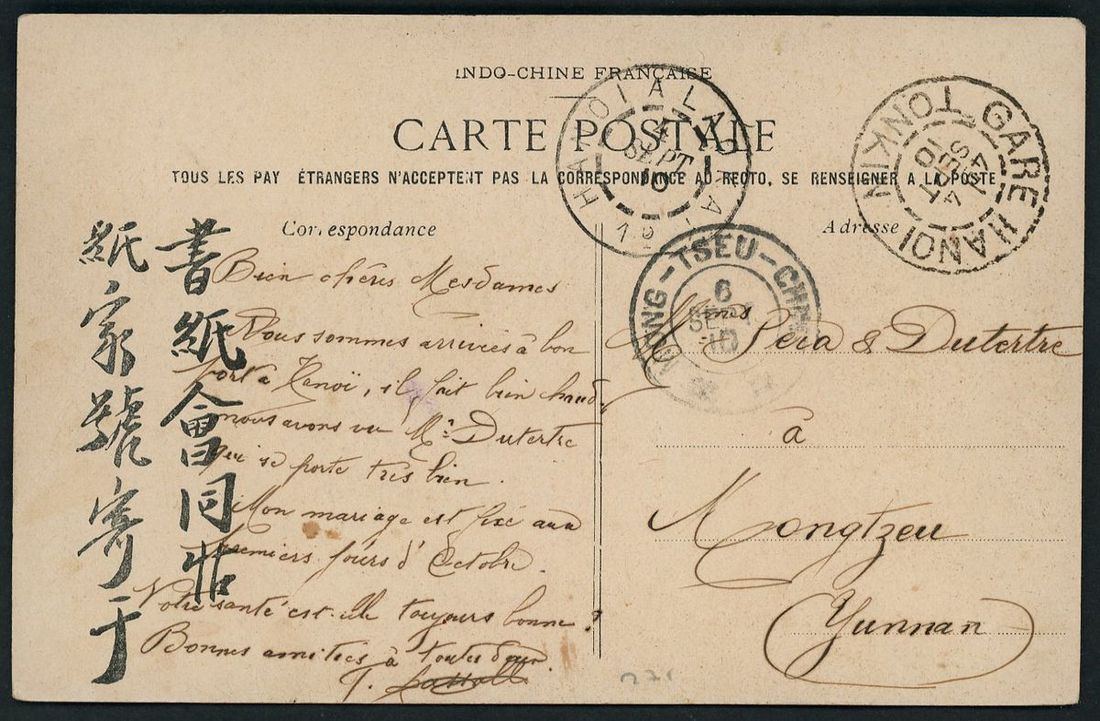 INDO-CHINE FRANÇAISE
CARTE POSTALE
TOUS LES PAY ÉTRANGERS N'ACCEPTENT PAS LA CORRESPONDANCE AU RECTO, SE RENSEIGNER A LA POSTE
Correspondance
Adresse
Bien chères Mesdames
Nous sommes arrivées à bon
port à Hanoï, il fait bien chaud,
nous avons vu Mr. Dutertre
qui se porte très bien.
Mon mariage est fixé aux
premiers jours d'Octobre.
Votre santé est-elle toujours bonne?
Bonnes amitiés à toutes deux
T.
Mmes Pera & Dutertre
à
Mongtzeu
Yunnan
書紙會同
紙家號寄于
HANOI A LAO-KAY
1
4
SEPT
10
GARE HANOI TONKIN
4
SEPT
10
MONG-TSEU-CHINE
6
SEPT
10